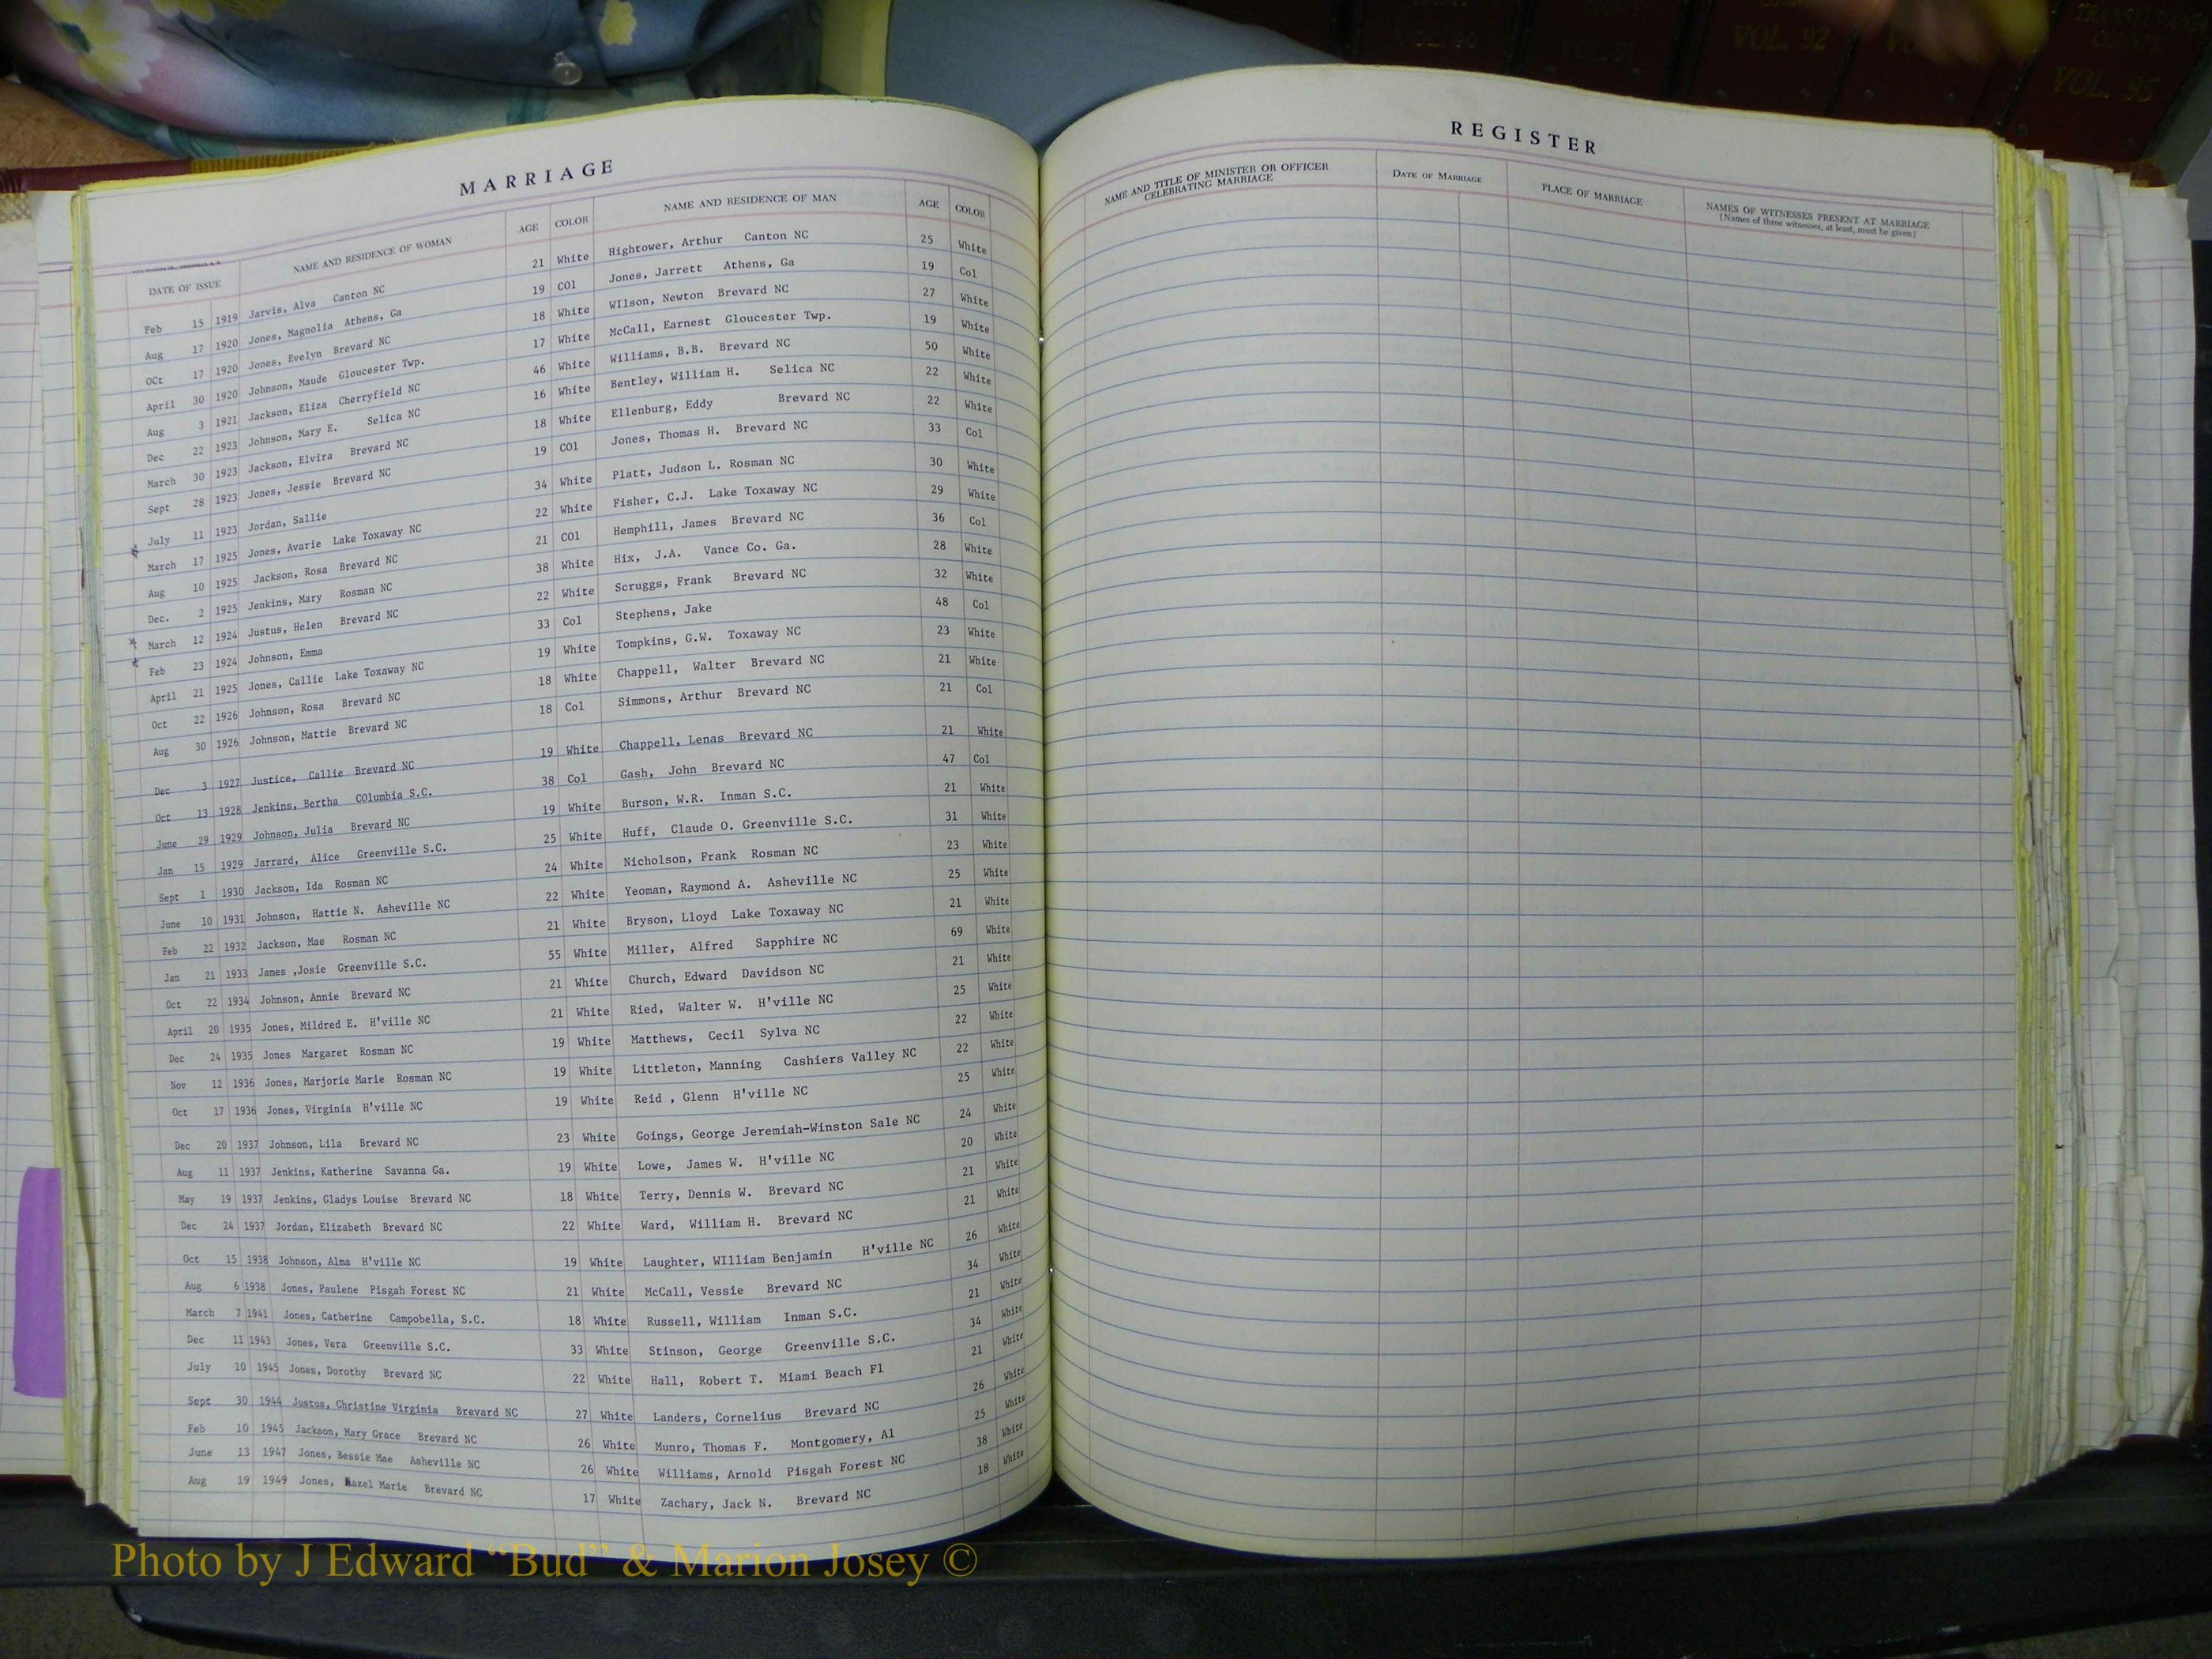 VOL. 92
TRANSYLVANIA
COUNTY
VOL. 95
MARRIAGE
DATE OF ISSUE NAME AND RESIDENCE OF WOMAN AGE COLOR NAME AND RESIDENCE OF MAN AGE COLOR
Feb 15 1919 Jarvis, Alva Canton NC 21 White Hightower, Arthur Canton NC 25 White
Aug 17 1920 Jones, Magnolia Athens, Ga 19 COl Jones, Jarrett Athens, Ga 19 Col
OCt 17 1920 Jones, Evelyn Brevard NC 18 White WIlson, Newton Brevard NC 27 White
April 30 1920 Johnson, Maude Gloucester Twp. 17 White McCall, Earnest Gloucester Twp. 19 White
Aug 3 1921 Jackson, Eliza Cherryfield NC 46 White Williams, B.B. Brevard NC 50 White
Dec 22 1923 Johnson, Mary E. Selica NC 16 White Bentley, William H. Selica NC 22 White
March 30 1923 Jackson, Elvira Brevard NC 18 White Ellenburg, Eddy Brevard NC 22 White
Sept 28 1923 Jones, Jessie Brevard NC 19 COl Jones, Thomas H. Brevard NC 33 Col
July 11 1923 Jordan, Sallie 34 White Platt, Judson L. Rosman NC 30 White
March 17 1925 Jones, Avarie Lake Toxaway NC 22 White Fisher, C.J. Lake Toxaway NC 29 White
Aug 10 1925 Jackson, Rosa Brevard NC 21 COl Hemphill, James Brevard NC 36 Col
Dec. 2 1925 Jenkins, Mary Rosman NC 38 White Hix, J.A. Vance Co. Ga. 28 White
March 12 1924 Justus, Helen Brevard NC 22 White Scruggs, Frank Brevard NC 32 White
Feb 23 1924 Johnson, Emma 33 Col Stephens, Jake 48 Col
April 21 1925 Jones, Callie Lake Toxaway NC 19 White Tompkins, G.W. Toxaway NC 23 White
Oct 22 1926 Johnson, Rosa Brevard NC 18 White Chappell, Walter Brevard NC 21 White
Aug 30 1926 Johnson, Mattie Brevard NC 18 Col Simmons, Arthur Brevard NC 21 Col
Dec 3 1927 Justice, Callie Brevard NC 19 White Chappell, Lenas Brevard NC 21 White
Oct 13 1928 Jenkins, Bertha COlumbia S.C. 38 Col Gash, John Brevard NC 47 Col
June 29 1929 Johnson, Julia Brevard NC 19 White Burson, W.R. Inman S.C. 21 White
Jan 15 1929 Jarrard, Alice Greenville S.C. 25 White Huff, Claude O. Greenville S.C. 31 White
Sept 1 1930 Jackson, Ida Rosman NC 24 White Nicholson, Frank Rosman NC 23 White
June 10 1931 Johnson, Hattie N. Asheville NC 22 White Yeoman, Raymond A. Asheville NC 25 White
Feb 22 1932 Jackson, Mae Rosman NC 21 White Bryson, Lloyd Lake Toxaway NC 21 White
Jan 21 1933 James ,Josie Greenville S.C. 55 White Miller, Alfred Sapphire NC 69 White
Oct 22 1934 Johnson, Annie Brevard NC 21 White Church, Edward Davidson NC 21 White
April 20 1935 Jones, Mildred E. H'ville NC 21 White Ried, Walter W. H'ville NC 25 White
Dec 24 1935 Jones Margaret Rosman NC 19 White Matthews, Cecil Sylva NC 22 White
Nov 12 1936 Jones, Marjorie Marie Rosman NC 19 White Littleton, Manning Cashiers Valley NC 22 White
Oct 17 1936 Jones, Virginia H'ville NC 19 White Reid , Glenn H'ville NC 25 White
Dec 20 1937 Johnson, Lila Brevard NC 23 White Goings, George Jeremiah-Winston Sale NC 24 White
Aug 11 1937 Jenkins, Katherine Savanna Ga. 19 White Lowe, James W. H'ville NC 20 White
May 19 1937 Jenkins, Gladys Louise Brevard NC 18 White Terry, Dennis W. Brevard NC 21 White
Dec 24 1937 Jordan, Elizabeth Brevard NC 22 White Ward, William H. Brevard NC 21 White
Oct 15 1938 Johnson, Alma H'ville NC 19 White Laughter, WIlliam Benjamin H'ville NC 26 White
Aug 6 1938 Jones, Paulene Pisgah Forest NC 21 White McCall, Vessie Brevard NC 34 White
March 7 1941 Jones, Catherine Campobella, S.C. 18 White Russell, William Inman S.C. 21 White
Dec 11 1943 Jones, Vera Greenville S.C. 33 White Stinson, George Greenville S.C. 34 White
July 10 1945 Jones, Dorothy Brevard NC 22 White Hall, Robert T. Miami Beach Fl 21 White
Sept 30 1944 Justus, Christine Virginia Brevard NC 27 White Landers, Cornelius Brevard NC 26 White
Feb 10 1945 Jackson, Mary Grace Brevard NC 26 White Munro, Thomas F. Montgomery, Al 25 White
June 13 1947 Jones, Bessie Mae Asheville NC 26 White Williams, Arnold Pisgah Forest NC 38 White
Aug 19 1949 Jones, Hazel Marie Brevard NC 17 White Zachary, Jack N. Brevard NC 18 White
REGISTER
NAME AND TITLE OF MINISTER OR OFFICER CELEBRATING MARRIAGE DATE OF MARRIAGE PLACE OF MARRIAGE NAMES OF WITNESSES PRESENT AT MARRIAGE
(Names of three witnesses, at least, must be given)
Photo by J Edward “Bud” & Marion Josey ©